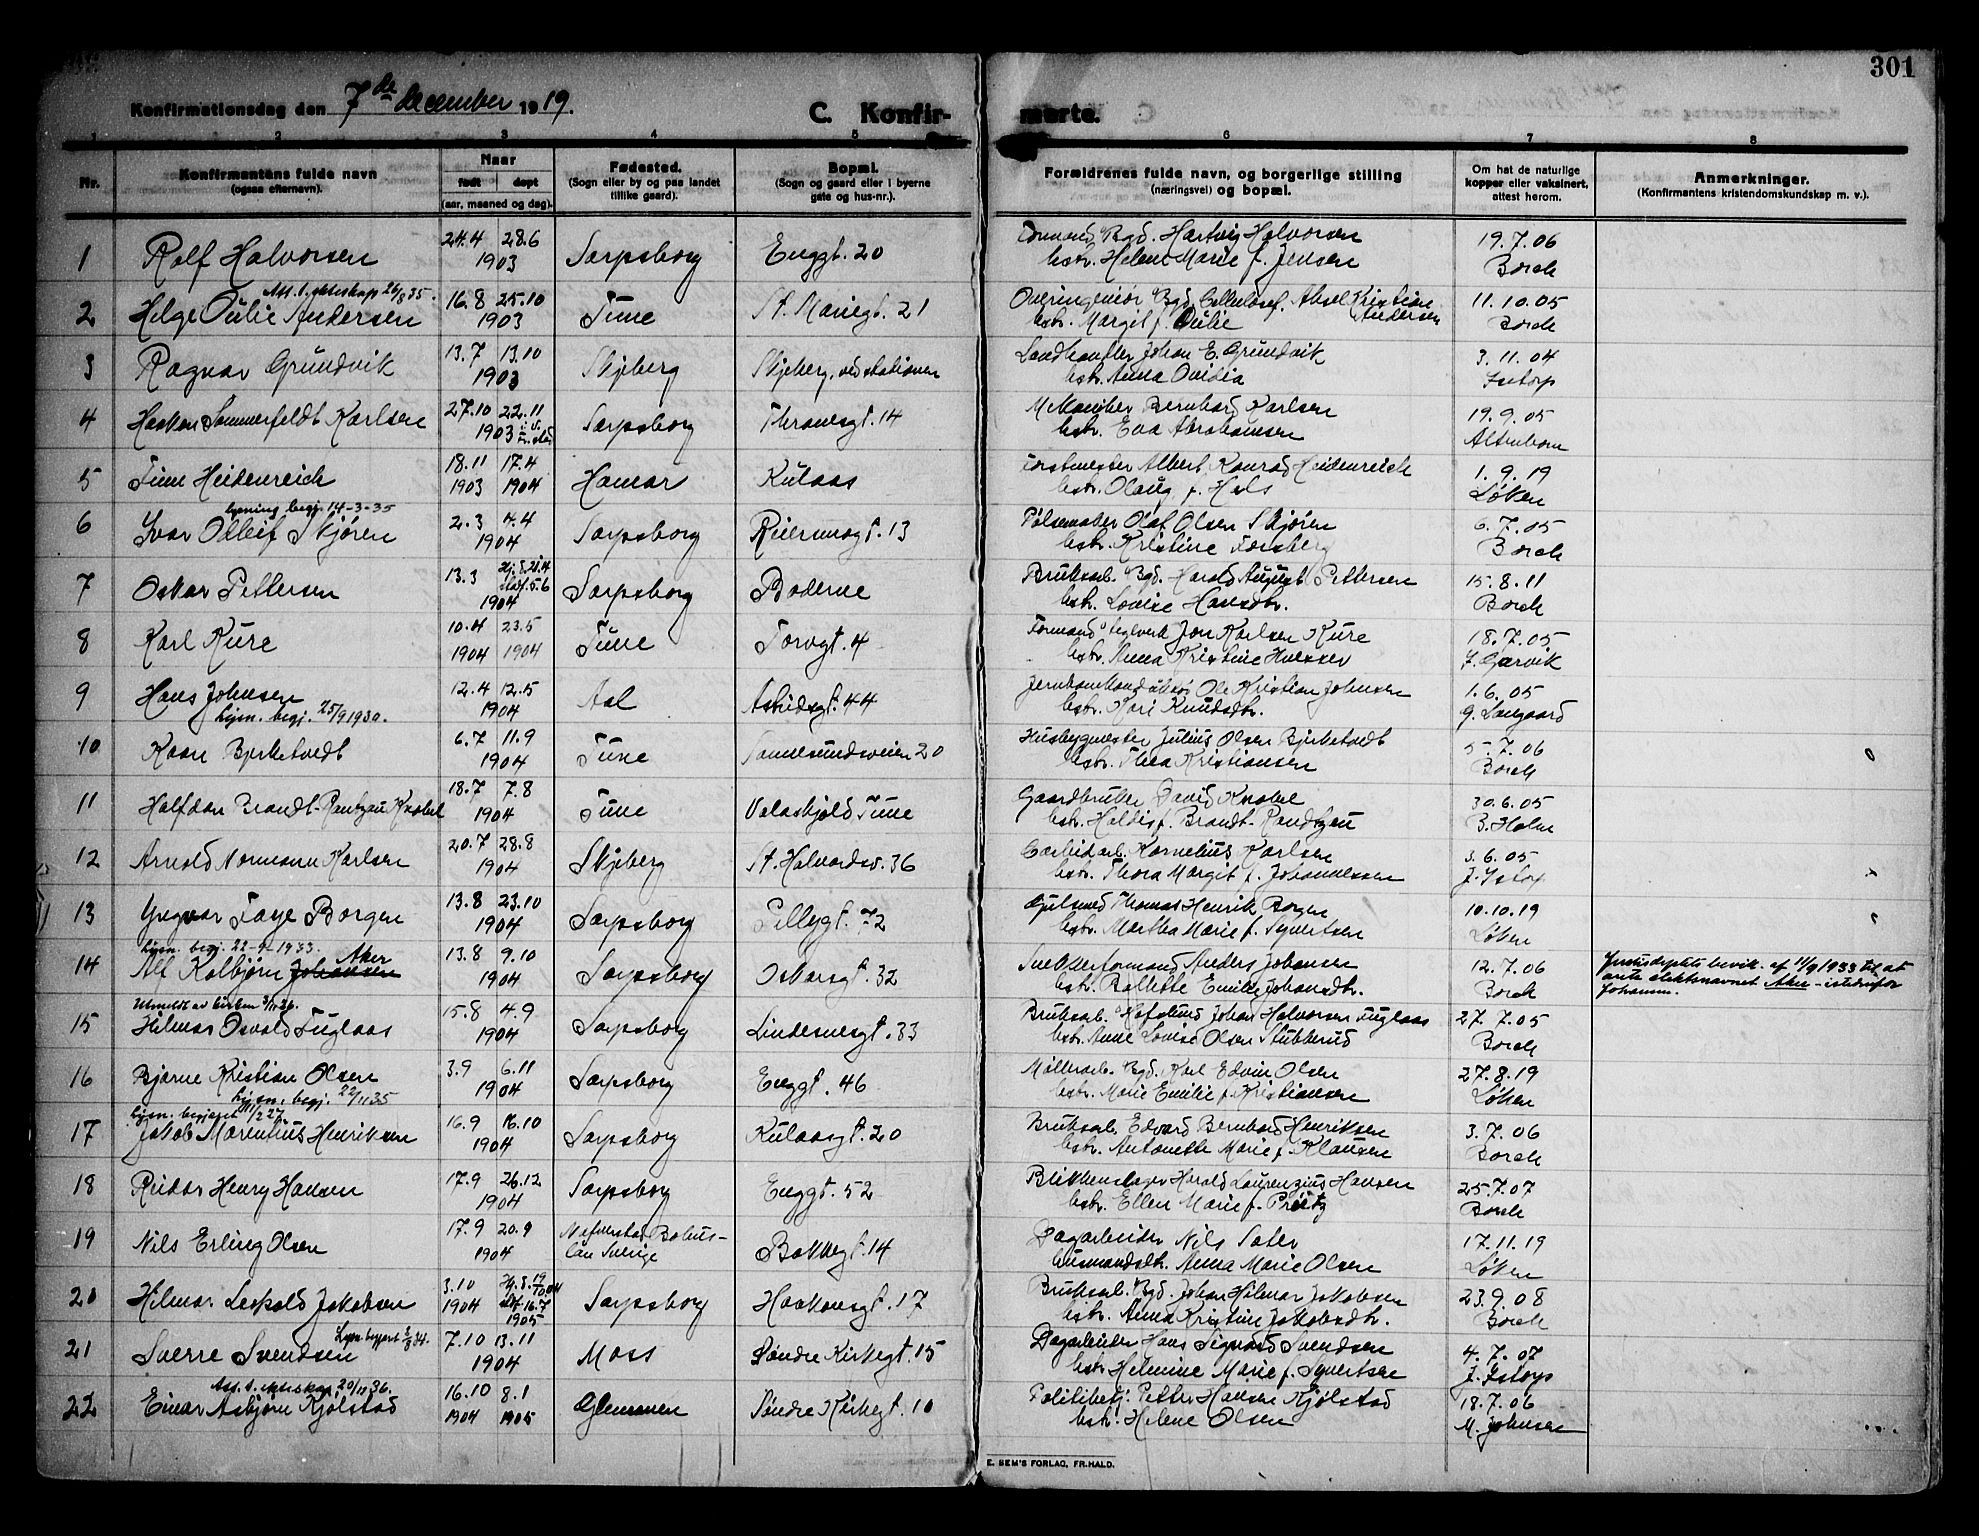 301
Konfirmationsdag den 7de december 1919.
C. Konfirmerte.
1 2 3 4 5 6 7 8
Nr.
Konfirmantens fulde navn
(ogsaa efternavn).
Naar
født døpt
(aar, maaned og dag).
Fødested.
(Sogn eller by og paa landet
tillike gaard).
Bopæl.
(Sogn og gaard eller i byerne
gate og hus-nr.).
Forældrenes fulde navn, og borgerlige stilling
(næringsvei) og bopæl.
Om hat de naturlige
kopper eller vaksinert,
attest herom.
Anmerkninger.
(Konfirmantens kristendomskundskap m. v.).
1 Rolf Halvorsen 24.4 28.6 1903 Sarpsborg Enggt. 20 Formand Bgd. Hartvig Halvorsen 19.7.06
hstr. Helene Marie f. Jensen Borch
Att. t. ekteskap 26/8 35.
2 Helge Oulie Andersen 16.8 25.10 1903 Tune St. Mariegt. 21 Overingeniør Bgd. Cellulosef. Aksel Kristian Andersen 11.10.05
hstr. Margit f. Oulie Borch
3 Ragnar Grundvik 13.7 13.10 1903 Skjeberg Skjeberg, ved stationen Landhandler Johan E. Grundvik 3.11.04
hstr. Anna Ovidia Istorp
4 Haakon Sommerfeldt Karlsen 27.10 22.11 1903 Sarpsborg Thranesgt. 14 Bernhard Karlsen 19.9.05
hstr. Eva Abrahamsen
5 Tune Heidenreich 18.11 1903 17.4 1904 Hamar Kulaas Forstmester Albert Konrad Heidenreich 1.9.19
hstr. Olaug f. Hals Løken
Lysning begj. 14-3-35
6 Ivar Olleif Skjøren 2.3 4.4 1904 Sarpsborg Reiermosgt. 13 Pølsemaker Olaf Olsen Skjøren 6.7.05
hstr. Kristine Forsberg Borch
7 Oskar Pettersen 13.3 Hj. d. 21.4 stadf. 5.6 1904 Sarpsborg Boderne Bruksarb. Bgd. Harald August Pettersen 15.8.11
hstr. Lovise Hansdtr. Borch
8 Karl Kure 10.4 1904 23.5 1904 Tune Torvgt. 4 Formand Teglverk Jon Karlsen Kure 18.7.05
hstr. Anna Kristine J. Garvik
9 Hans Johnsen 12.4 12.5 1904 Aal Astridsgt. 44 Ole Kristian Johnsen 1.6.05
Lysn. begj. 25/9 1930. hstr. Kari Knudsdtr. G. Langaard
10 Kaare Bjerketvedt 6.7 11.9 1904 Tune Sannesundsveien 20 Husbygmester Julius Olsen Bjerketvedt 5.7.06
hstr. Thea Kristiansen Borch
11 Halfdan Brandt-Rantzau Knobel 18.7 7.8 1904 Tune Valaskjold Tune Gaardbruker David Knobel 30.6.05
hstr. Haldis f. Brandt-Randzau B. Holm
12 Arnold Normann Karlsen 20.7 28.8 1904 Skjeberg St. Halvardsv. 36 Carbidarb. Kornelius Karlsen 3.6.05
hstr. Thora Margit f. Johannessen
13 Yngvar Faye Borgen 13.8 23.10 1904 Sarpsborg Pellygt. 72 Gulsmed Thomas Henrik Borgen 10.10.19
hstr. Martha Marie f. Syvertsen Løken
Lysn. begj. 22-9-1933.
14 Alf Kolbjørn Johansen Aker 13.8 9.10 1904 Sarpsborg Oskarsgt. 32 Anders Johansen 12.7.06
hstr. Ballette Emilie Johansdtr. Borch
Justisdeptets bevilg. af 11/9 1933 til at
anta slektsnavnet Aker - istedenfor
Johansen.
Utmeldt av kirken 3/11 26.
15 Hilmar Osvald Fuglaas 15.8 4.9 1904 Sarpsborg Lindemosgt. 33 Bruksarb. Hafslund Johan Halvorsen Fuglaas 27.7.05
hstr. Anne Lovise Olsen Stubberud Borch
16 Bjarne Kristian Olsen 3.9 6.11 1904 Sarpsborg Enggt. 46 Møllerarb. Bgd. Karl Edvin Olsen 27.8.19
Lysn. begj. 22/11 35 hstr. Marie Emilie f. Kristiansen Løken
Lysn. begjæret 11/2 27.
17 Jakob Marentius Henriksen 16.9 16.10 1904 Sarpsborg Kulaasgt. 20 Bruksarb. Edvard Bernhard Henriksen 3.7.06
hstr. Antonette Marie f. Klausen Borch
18 Reidar Henry Hansen 17.9 26.12 1904 Sarpsborg Enggt. 52 Blikkenslager Harald Laurenzius Hansen 25.7.07
hstr. Ellen Marie f. Preutz Borch
19 Nils Erling Olsen 17.9 20.9 1904 Bohuslän Sverige Bakkegt. 14 Dagarbeider Nils Sater 17.11.19
husmandsdtr. Anna Marie Olsen Løken
20 Hilmar Leopold Jakobsen 3.10 1904 Hj. d. 19/10 04 stf. 16.7 1905 Sarpsborg Haakonsgt. 17 Bruksarb. Bgd. Johan Hilmar Jakobsen 23.9.08
hstr. Anna Kristine Jakobsdtr. Borch
Lysn begjært 2/8 34.
21 Sverre Svendsen 7.10 13.11 1904 Moss Søndre Kirkegt. 15 Dagarbeider Hans Sigvard Svendsen 4.7.07
hstr. Helmine Marie f. Syvertsen J. Istorp
Att. t. ekteskap 20/11 36.
22 Einar Asbjørn Kjølstad 16.10 1904 8.1 1905 Glemmen Søndre Kirkegt. 10 Politibetj. Petter Hansen Kjølstad 18.7.06
hstr. Helene Olsen M. Johnsen
E. SEM'S FORLAG, FR.HALD.